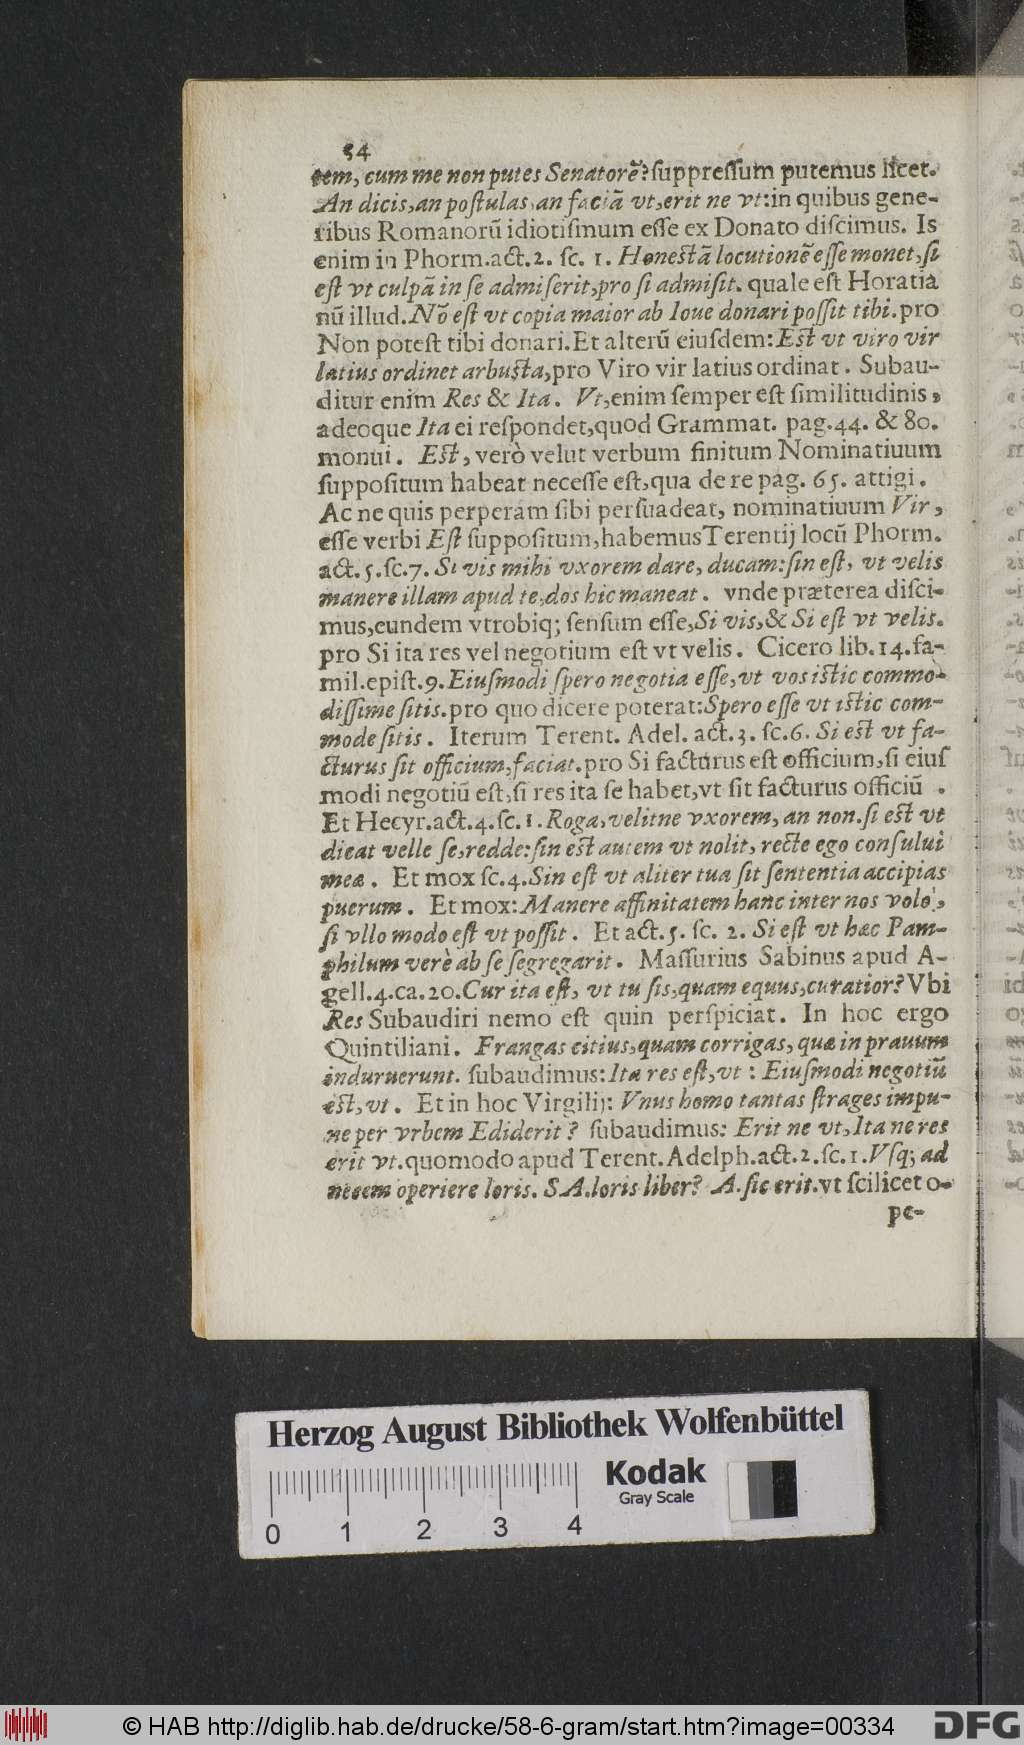 54
tem, cum me non putes Senatorē? ſuppreſſum putemus licet.
An dicis, an poſtulas, an faciā vt, erit ne vt: in quibus gene-
ribus Romanorū idiotiſmum eſſe ex Donato diſcimus. Is
enim in Phorm. act. 2. ſc. 1. Honeſtā locutionē eſſe monet, ſi
eſt vt culpā in ſe admiſerit, pro ſi admiſit. quale eſt Horatia
nū illud. Nō eſt vt copia maior ab Ioue donari poſſit tibi. pro
Non poteſt tibi donari. Et alterū eiuſdem: Eſt vt viro vir
latius ordinet arbuſta, pro Viro vir latius ordinat. Subau-
ditur enim Res & Ita. Vt, enim ſemper eſt ſimilitudinis,
adeoque Ita ei reſpondet, quod Grammat. pag. 44. & 80.
monui. Eſt, verò velut verbum finitum Nominatiuum
ſuppoſitum habeat neceſſe eſt, qua de re pag. 65. attigi.
Ac ne quis perperam ſibi perſuadeat, nominatiuum Vir,
eſſe verbi Eſt ſuppoſitum, habemus Terentij locū Phorm.
act. 5. ſc. 7. Si vis mihi vxorem dare, ducam: ſin eſt, vt velis
manere illam apud te, dos hic maneat. vnde præterea diſci-
mus, eundem vtrobiq; ſenſum eſſe, Si vis, & Si eſt vt velis.
pro Si ita res vel negotium eſt vt velis. Cicero lib. 14. fa-
mil. epiſt. 9. Eiuſmodi ſpero negotia eſſe, vt vos iſtic commo-
diſſime ſitis. pro quo dicere poterat: Spero eſſe vt iſtic com-
mode ſitis. Iterum Terent. Adel. act. 3. ſc. 6. Si eſt vt fa-
cturus ſit officium, faciat. pro Si facturus eſt officium, ſi eiuſ
modi negotiū eſt, ſi res ita ſe habet, vt ſit facturus officiū .
Et Hecyr. act. 4. ſc. 1. Roga, velitne vxorem, an non. ſi eſt vt
dicat velle ſe, redde: ſin eſt autem vt nolit, recte ego conſului
meæ. Et mox ſc. 4. Sin eſt vt aliter tua ſit ſententia accipias
puerum. Et mox: Manere affinitatem hanc inter nos volo,
ſi vllo modo eſt vt poſſit. Et act. 5. ſc. 2. Si eſt vt hæc Pam-
philum verè ab ſe ſegregarit. Maſſurius Sabinus apud A-
gell. 4. ca. 20. Cur ita eſt, vt tu ſis, quam equus, curatior? Vbi
Res Subaudiri nemo eſt quin perſpiciat. In hoc ergo
Quintiliani. Frangas citius, quam corrigas, quæ in prauum
induruerunt. ſubaudimus: Ita res eſt, vt: Eiuſmodi negotiū
eſt, vt. Et in hoc Virgilij: Vnus homo tantas ſtrages impu-
ne per vrbem Ediderit? ſubaudimus: Erit ne vt, Ita ne res
erit vt. quomodo apud Terent. Adelph. act. 2. ſc. 1. Vſq; ad
necem operiere loris. SA. loris liber? A. ſic erit. vt ſcilicet o-
pe-
Herzog August Bibliothek Wolfenbüttel
Kodak
Gray Scale
0 1 2 3 4
© HAB http://diglib.hab.de/drucke/58-6-gram/start.htm?image=00334
DFG